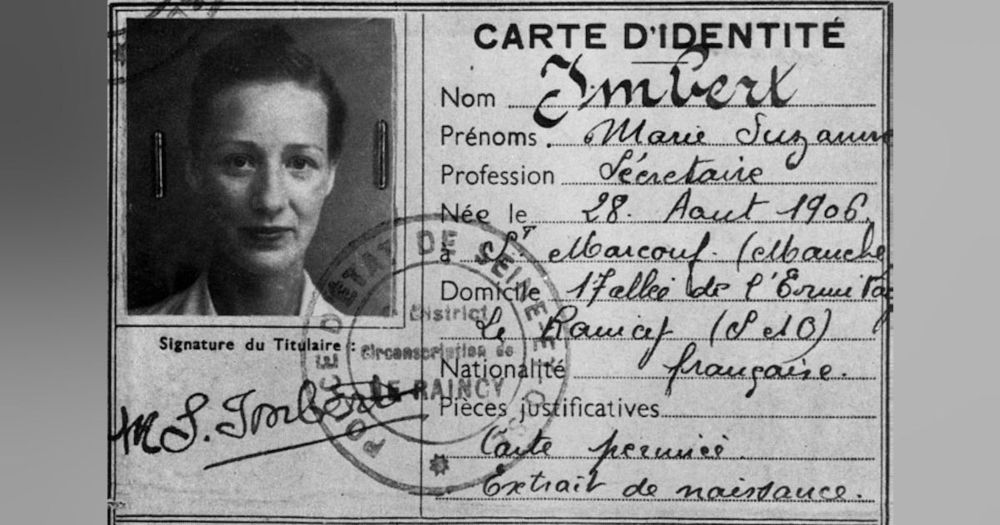 CARTE D'IDENTITÉ
Nom Imbert
Prénoms. Marie Suzanne
Profession Sécretaire
Née le 28. Aout 1906.
à St Marcouf. (Manche
Domicile 17 allée de l'Ermitage
Le Raincy (S et O)
Nationalité française.
Pièces justificatives
Carte
Extrait de naissance.
Signature du Titulaire :
M S. Imbert
POLICE D'ETAT DE SEINE-ET-O
District
Circonscription de
LE RAINCY